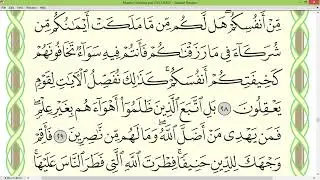 مِّنْ أَنفُسِكُمْ ۖ هَل لَّكُم مِّن مَّا مَلَكَتْ أَيْمَٰنُكُم مِّن
شُرَكَآءَ فِى مَا رَزَقْنَٰكُمْ فَأَنتُمْ فِيهِ سَوَآءٌ تَخَافُونَهُمْ
كَخِيفَتِكُمْ أَنفُسَكُمْ ۚ كَذَٰلِكَ نُفَصِّلُ ٱلْءَايَٰتِ لِقَوْمٍ
يَعْقِلُونَ ٢٨ بَلِ ٱتَّبَعَ ٱلَّذِينَ ظَلَمُوٓا۟ أَهْوَآءَهُم بِغَيْرِ عِلْمٍ ۖ
فَمَن يَهْدِى مَنْ أَضَلَّ ٱللَّهُ ۖ وَمَا لَهُم مِّن نَّٰصِرِينَ ٢٩ فَأَقِمْ
وَجْهَكَ لِلدِّينِ حَنِيفًا ۚ فِطْرَتَ ٱللَّهِ ٱلَّتِى فَطَرَ ٱلنَّاسَ عَلَيْهَا ۚ